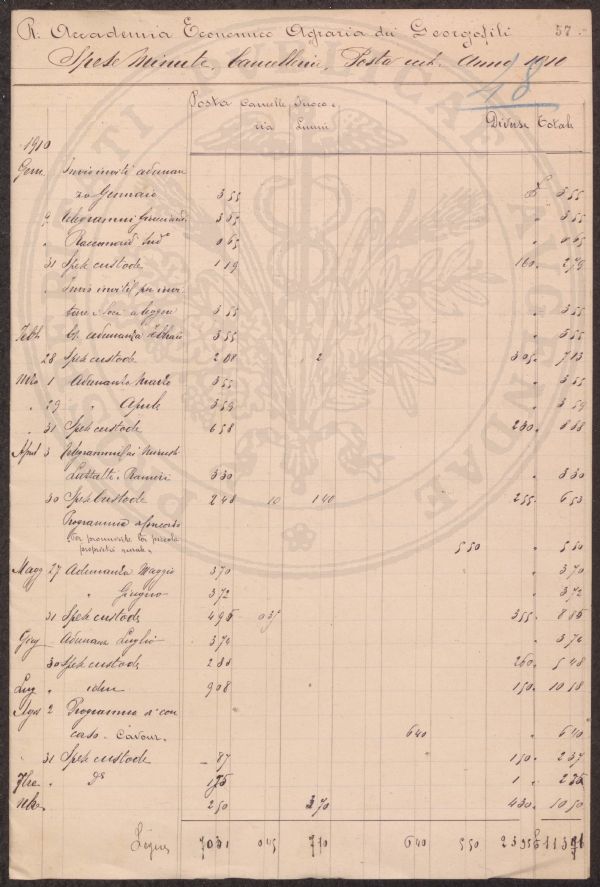 R. Accademia Economico Agraria dei Georgofili 57.
Spese Minute, Cancelleria, Posta ect. Anno 1910
48
Posta Cancelle Fuoco e
ria Lumi Diverse Totale
1910
Genn. Invio inviti adunan
za Gennaio 3 55 £ 3 55
9 telegrammi 3 35 " 3 35
" Raccomand 0 65 " 0 65
31 Spese custode 1 19 1 60 2 79
" Invio inviti per invi
tare i Soci a leggere 3 55 " 3 55
Febb adunanza Febbraio 3 55 " 3 55
28 Spese custode 2 08 2 3 05 7 13
Mzo 1 Adunanza Marzo 3 55 " 3 55
" 29 " Aprile 3 59 " 3 59
" 31 Spese custode 6 58 2 30 8 88
April 3 Telegrammi
Luzzatti e Raineri 3 30 " 3 30
30 Spese Custode 2 48 10 1 40 2 55 6 53
Programma concorso
per promuovere la piccola
proprietà rurale 5 50 " 5 50
Magg 27 Adunanza Maggio 3 70 " 3 70
" Giugno 3 72 " 3 72
31 Spese custode 4 95 0 35 3 55 8 85
Giug Adunanza Luglio 3 74 " 3 74
30 Spese custode 2 88 2 60 5 48
Lug " idem 9 08 1 50 10 58
Agos 2 Programma con
corso Cavour 6 40 " 6 40
31 Spese custode – 87 1 50 2 37
7bre " Ds 1 35 1 " 2 35
8bre 2 50 3 70 4 30 10 50
Segue 70 31 0 45 7 10 6 40 5 50 23 95 £ 113 71